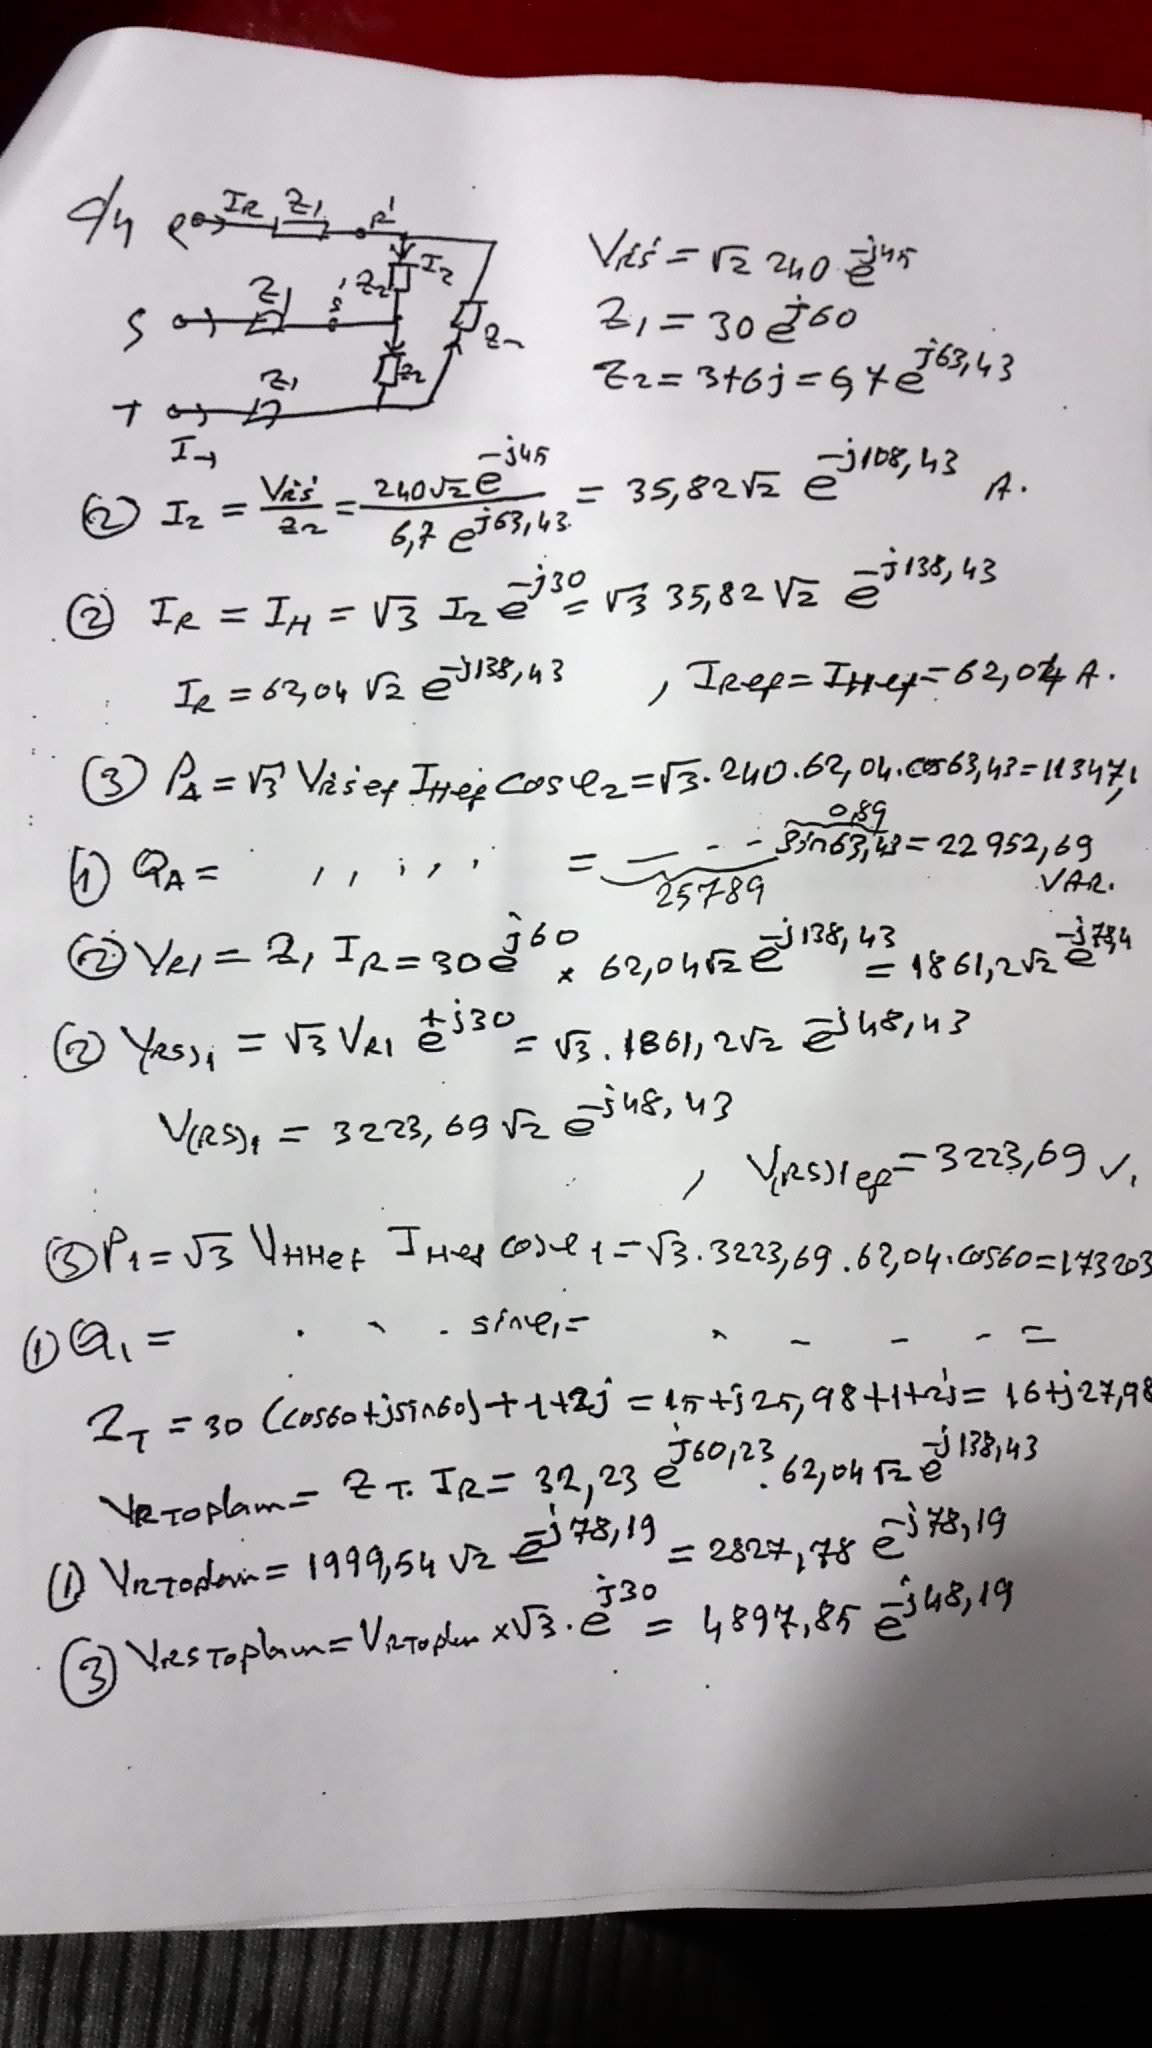 C/4
R I_R Z_1 R'
S Z_1 S' Z_2 I_2 Z_2
T Z_1 Z_2
I_T
V_R'S' = √2 240 e^-j45
Z_1 = 30 e^j60
Z_2 = 3+6j = 6,7 e^j63,43
② I_2 = V_R'S' / Z_2 = 240√2 e^-j45 / 6,7 e^j63,43 = 35,82√2 e^-j108,43 A.
② I_R = I_H = √3 I_2 e^-j30 = √3 35,82√2 e^-j138,43
I_R = 62,04 √2 e^-j138,43 , I_Ref = I_Hef = 62,04 A.
③ P_Δ = √3 V_R'S'ef I_Hef cos φ_2 = √3 . 240 . 62,04 . cos 63,43 = 11347,1
0,89
① Q_Δ = , , . , , = - - - sin 63,43 = 22952,69
25789 VAR.
② V_R1 = Z_1 I_R = 30 e^j60 × 62,04√2 e^-j138,43 = 1861,2√2 e^-j78,4
② V_(RS)1 = √3 V_R1 e^+j30 = √3 . 1861,2√2 e^-j48,43
V_(RS)1 = 3223,69 √2 e^-j48,43
, V_(RS)1ef = 3223,69 V,
③ P_1 = √3 U_HHef I_Hef cos φ_1 = √3 . 3223,69 . 62,04 . cos60 = 173203
① Q_1 = . . . sin φ_1 = - - - - =
Z_T = 30 (cos60+jsin60)+1+2j = 15+j25,98+1+2j = 16+j27,98
V_RToplam = Z_T . I_R = 32,23 e^j60,23 . 62,04 √2 e^-j138,43
① V_RToplam = 1999,54 √2 e^-j78,19 = 2827,78 e^-j78,19
③ V_RSToplam = V_RToplam × √3 . e^j30 = 4897,85 e^-j48,19